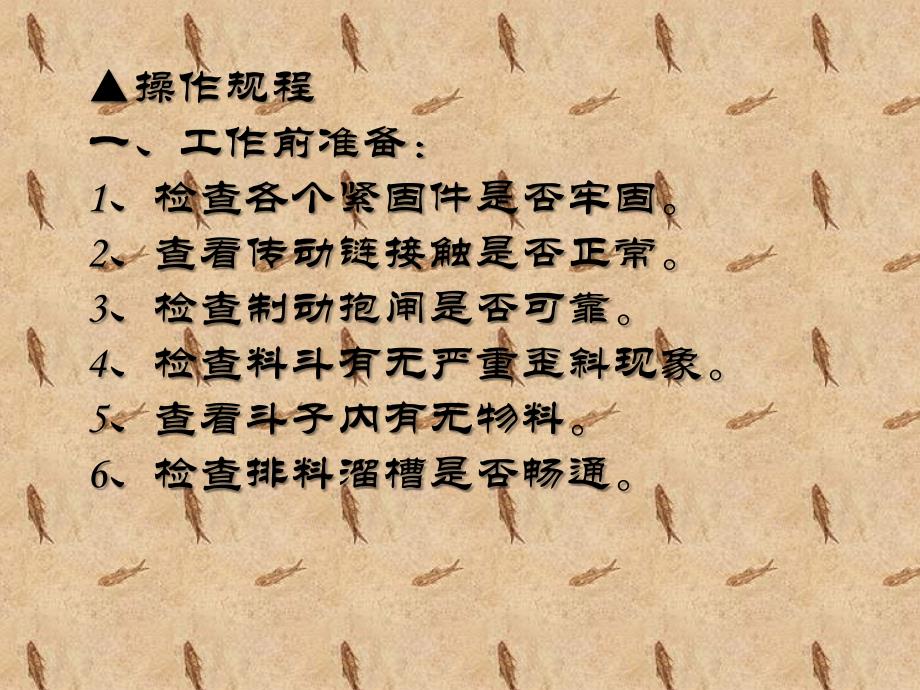 ▲操作规程
一、工作前准备：
1、检查各个紧固件是否牢固。
2、查看传动链接触是否正常。
3、检查制动抱闸是否可靠。
4、检查料斗有无严重歪斜现象。
5、查看斗子内有无物料。
6、检查排料溜槽是否畅通。